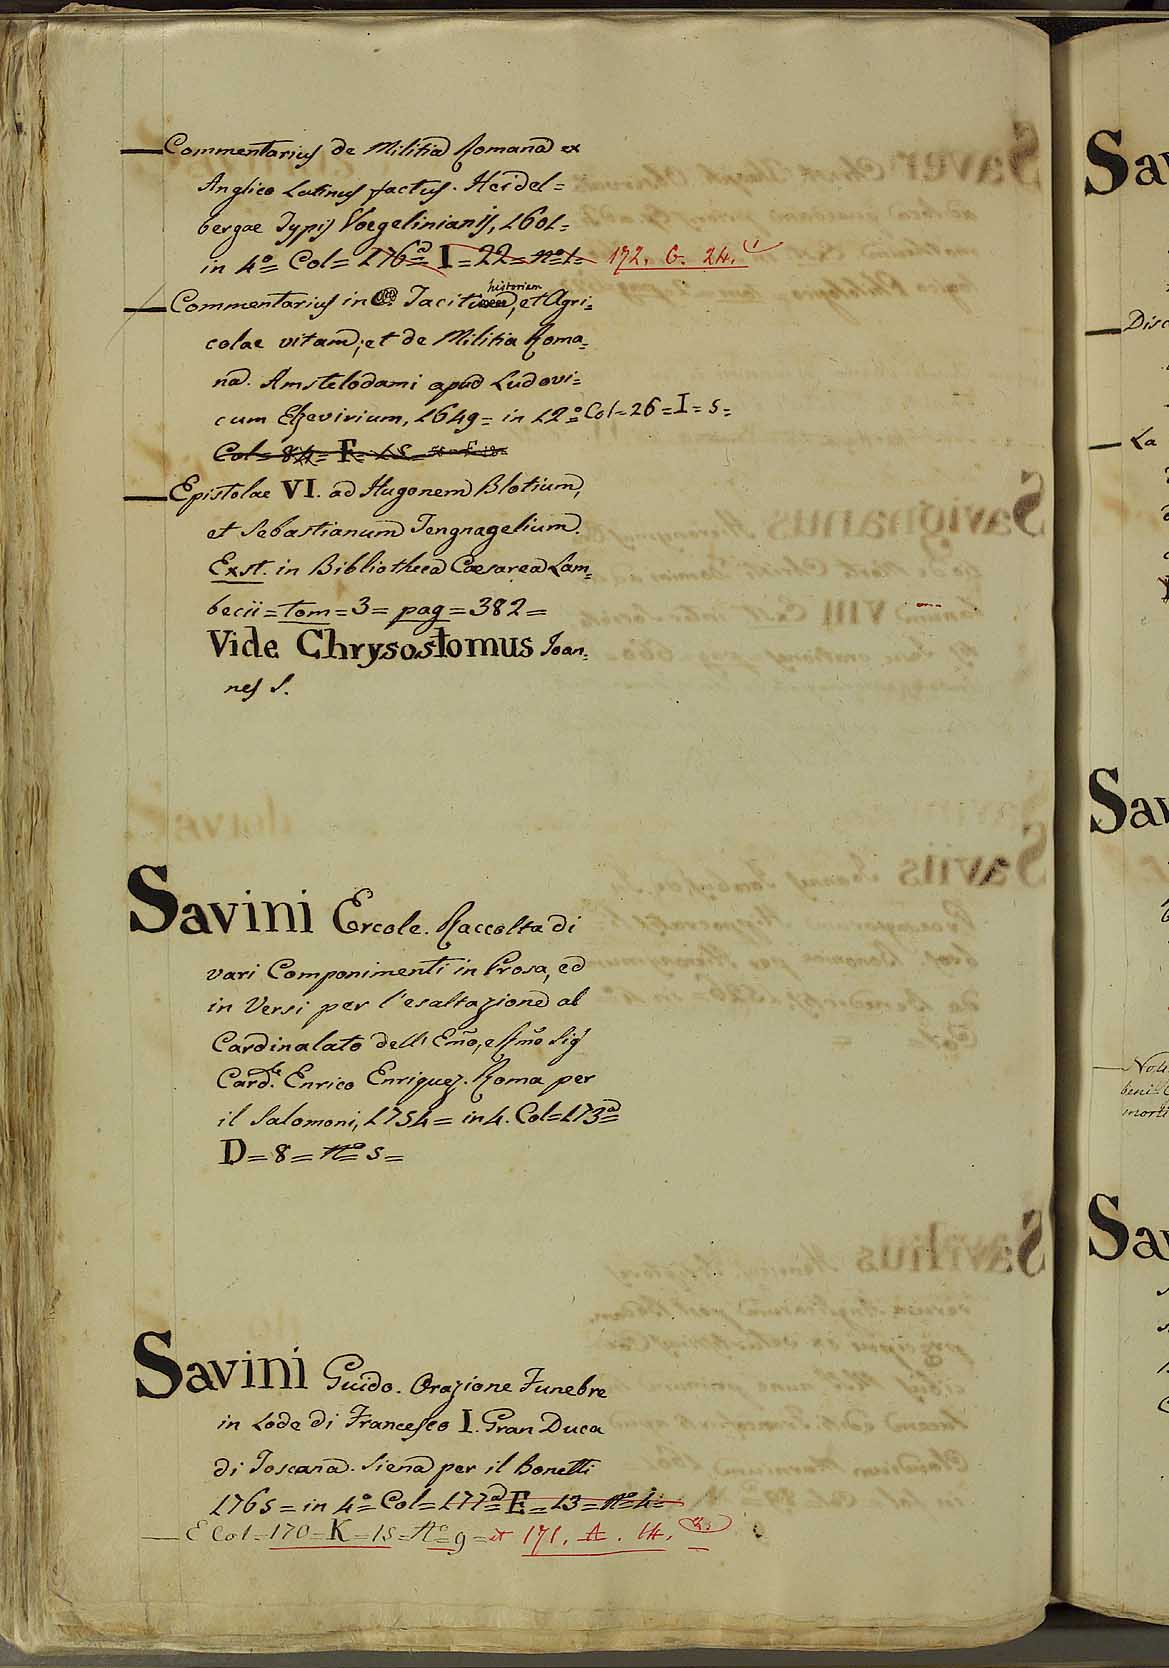 — Commentarius de Militia Romana ex
Anglico Latinus factus. Heidel=
bergae Typis Voegelinianis, 1601=
in 4.º= Col= 176ª= I = 22= nº 1= 172. G. 24. (1
— Commentarius in C. Taciti historiam, et Agri=
colae vitam; et de Militia Roma=
na. Amstelodami apud Ludovi=
cum Elzevirium, 1649= in 12º= Col=26=I=5=
Col= 84= F= 15=
— Epistolae VI. ad Hugonem Blotium,
et Sebastianum Tengnagelium.
Exst. in Bibliotheca Caesarea Lam=
becii=tom=3=pag=382=
Vide Chrysostomus Joan=
nes S.
Savini Ercole. Raccolta di
vari Componimenti in Prosa, ed
in Versi per l'esaltazione al
Cardinalato dell' Emo, e Rmo Sig
Card.le Enrico Enriquez. Roma per
il Salomoni, 1754= in 4. Col=173ª=
D=8= nº 5=
Savini Guido. Orazione Funebre
in Lode di Francesco I. Gran Duca
di Toscana. Siena per il Bonetti
1765= in 4º= Col=177ª= E=13= nº 4=
— E Col=170=K=15= nº 9= et 171. A. 14. (2.)
Sav
— Disc
— La
Sav
— Not
beni
morti
Sav